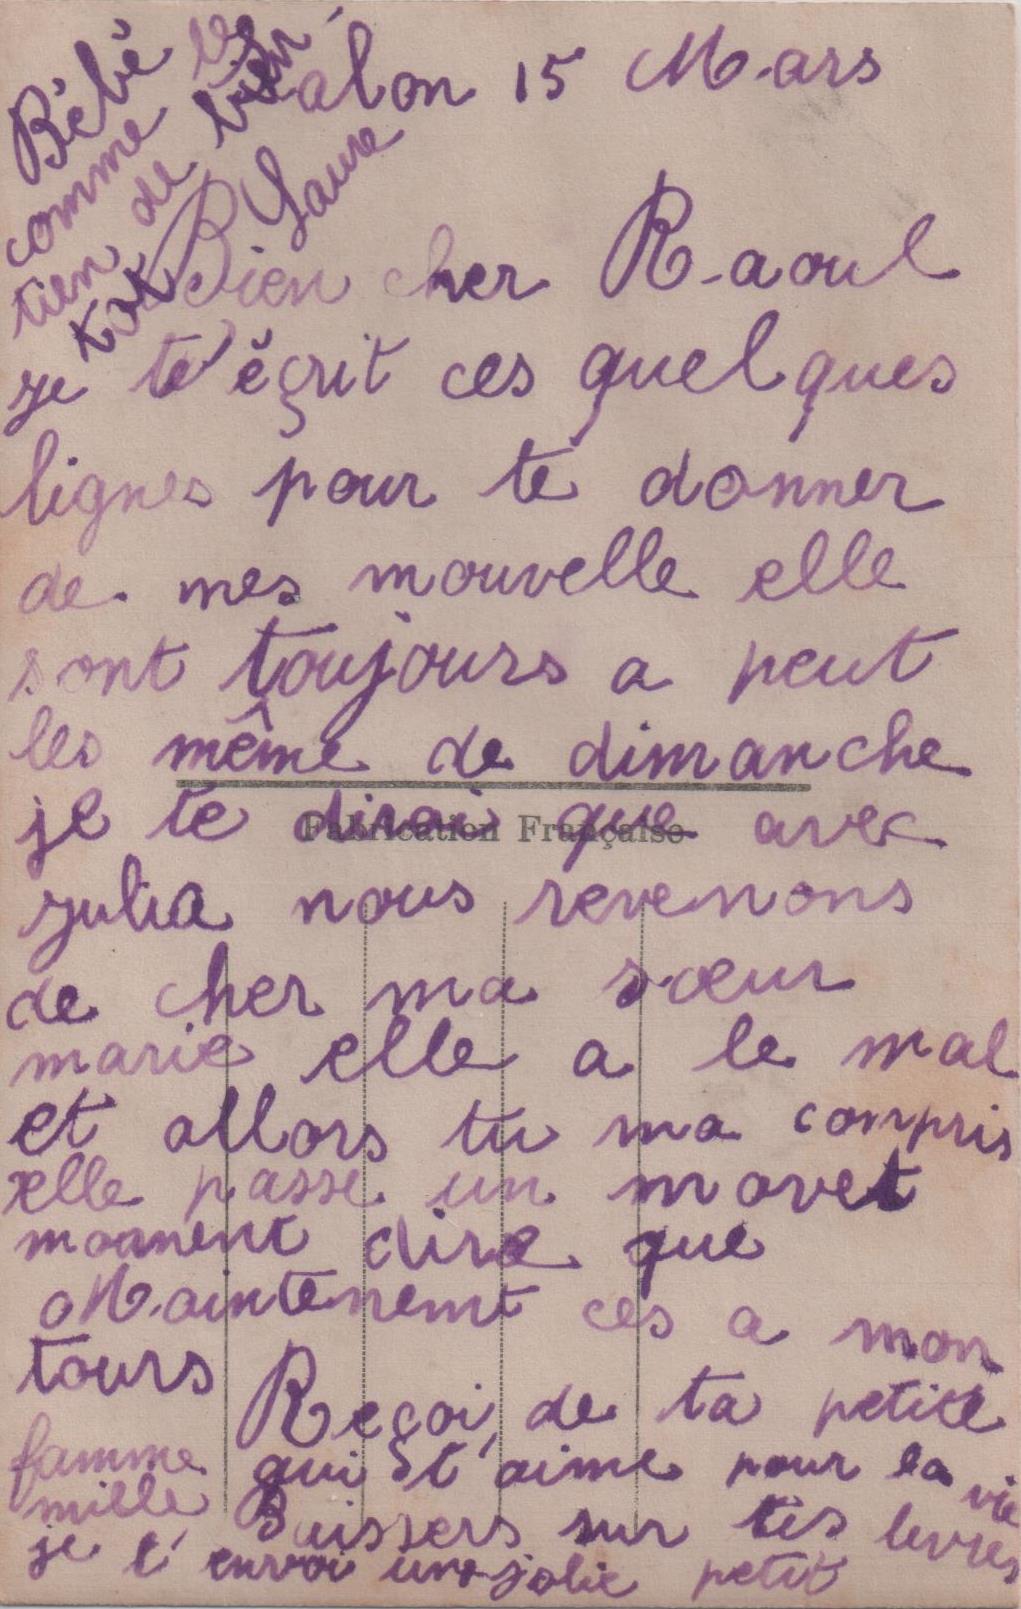 Salon 15 Mars
Bien cher Raoul
je té écrit ces quelques
lignes pour te donner
de mes nouvelle elle
sont toujours a peut
les même de dimanche
je te dirai que avec
Fabrication Française
julia nous revenons
de cher ma sœur
marie elle a le mal
et allors tu ma compris
elle passe un mavet
moment dire que
Maintenent ces a mon
tours
Reçoi de ta petite
famme qui t'aime pour la vie
mille Baissers sur tes levres
je t'envoi une jolie petit
Bébé
comme le
tien de bien
toi Laure